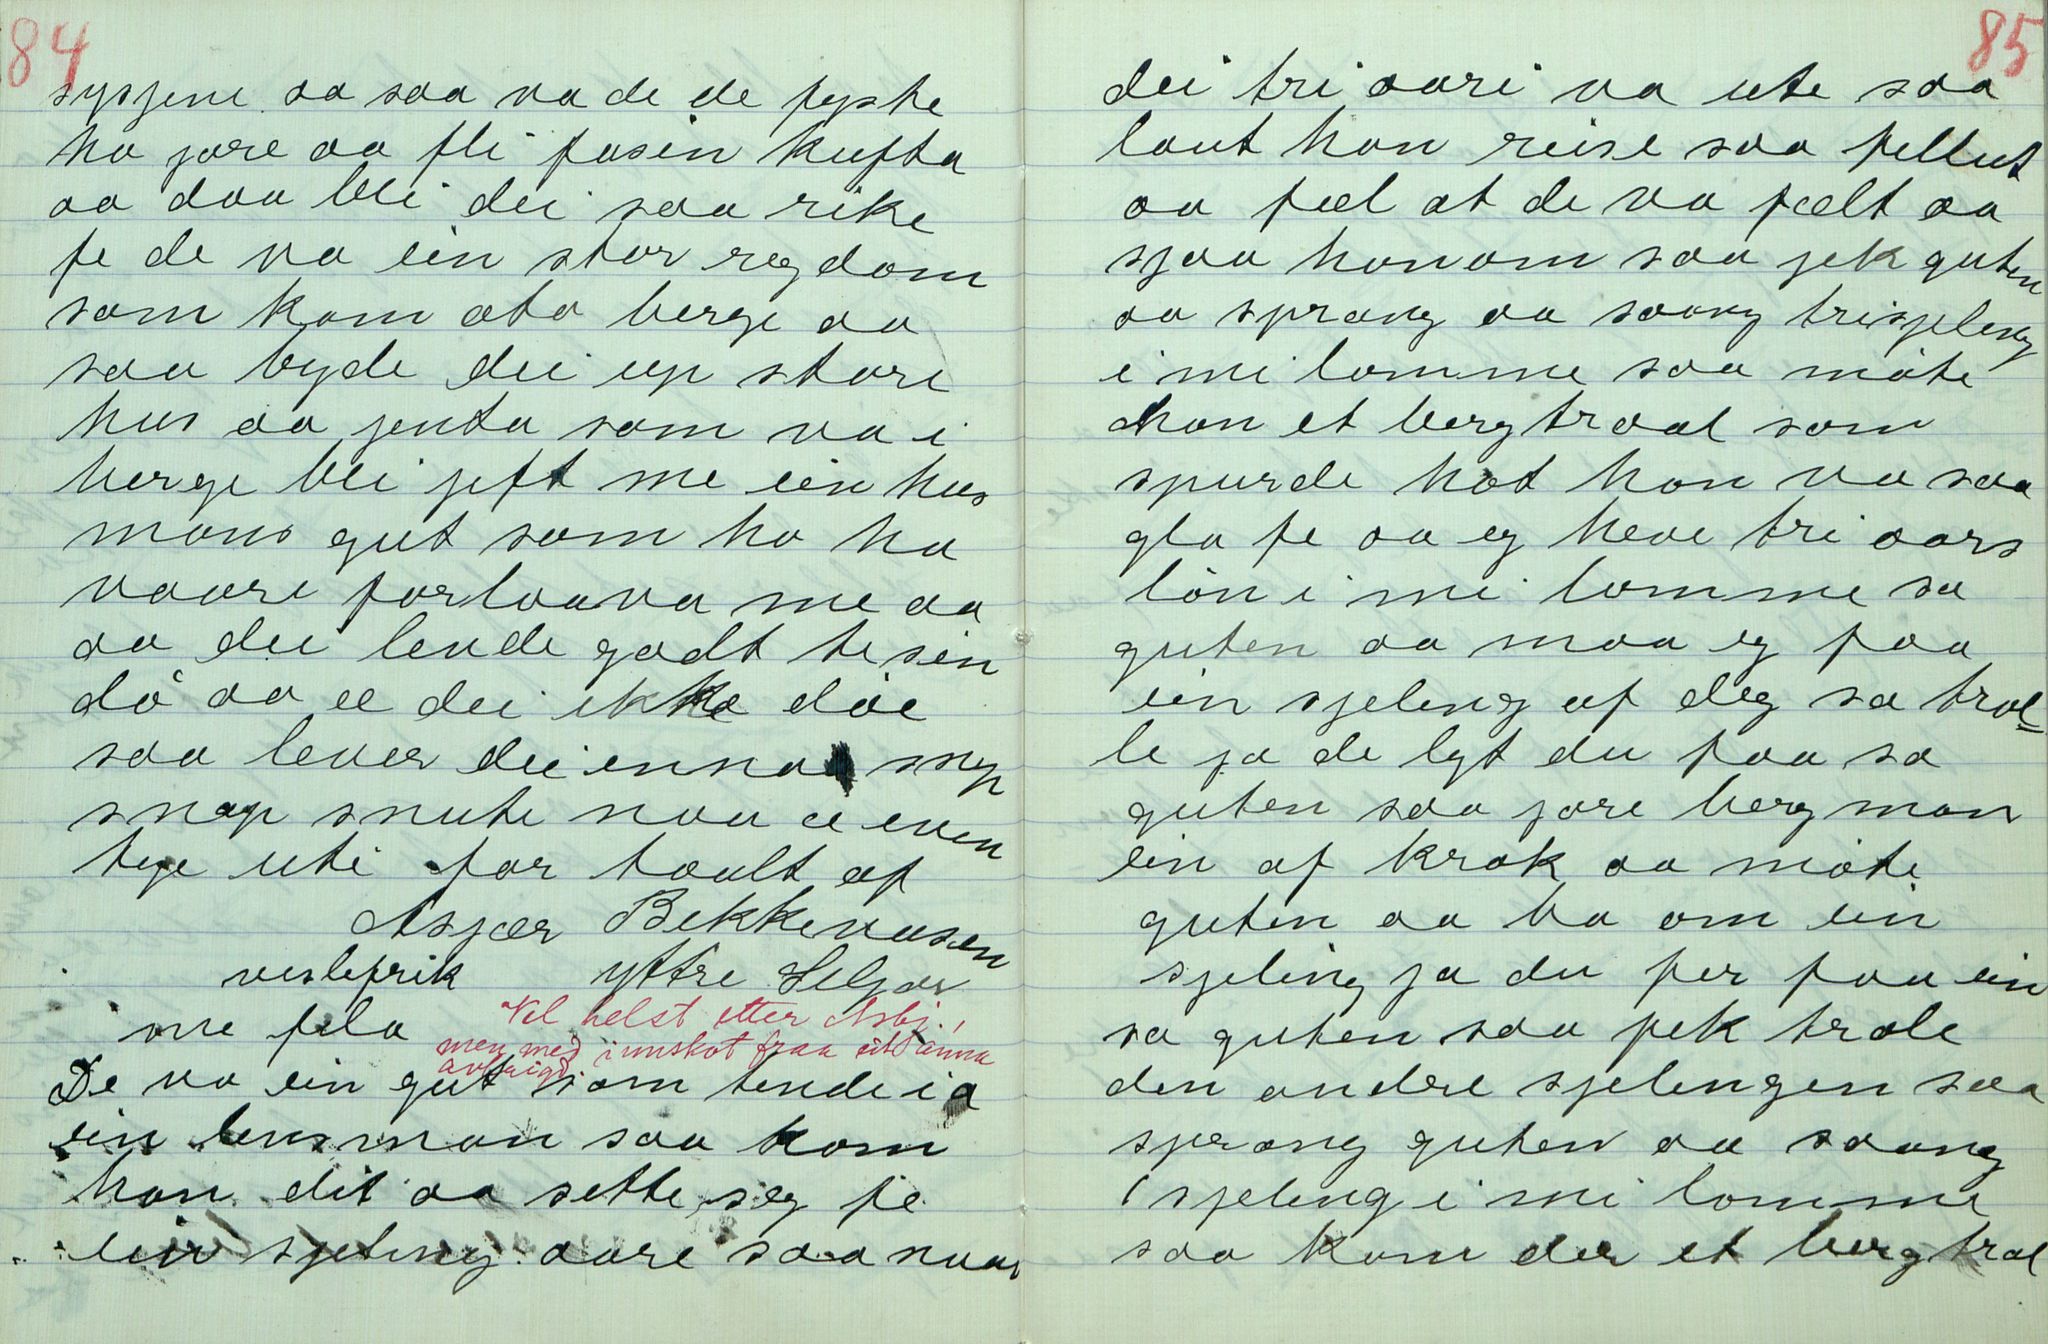 84
sysjene aa saa va de de fyste
ho jore aa fli fusin kufta
aa daa blei dei saa rike
fe de va ein stor regdom
som kom ata berge aa
saa bygde dei up store
hus aa jenta som va i
berge blei jeft me ein hus
mans gut som ho ha
vaare forlaava me aa
aa dei levde godt te sin
dö aa æ dei ikkje döe
saa lever dei ennaa snip
snap snute naa æ even
tye ute for taalt af
Asjær Bekkevasen
veslefrik yttre Seljor
me fela
Vel helst etter Asbj,
men med innskot fraa eit anna
æventyr.
De va ein gut som tende i a
ein lensman saa kom
han dit aa sette seg fe
ein sjeling aare saa naar
85
dei tri aari va ute saa
laut han reise saa fellut
aa fæl at de va fælt aa
sjaa honom saa jek guten
aa sprang aa saang trisjeling
i mi lomme saa möte
han et bergtraal som
spurde hot han va saa
gla fe aa eg heve tri aars
lön i mi lomme sa
guten aa maa eg faa
ein sjeling af deg sa trol=
le ja de lyt du faa sa
guten saa jore bergman
ein af krok aa möte
guten aa ba om ein
sjeling ja du fer faa ein
sa guten saa fek trole
den andre sjelingen saa
sprang guten aa saang
1 sjeling i mi lomme
saa kom der et bergtrol